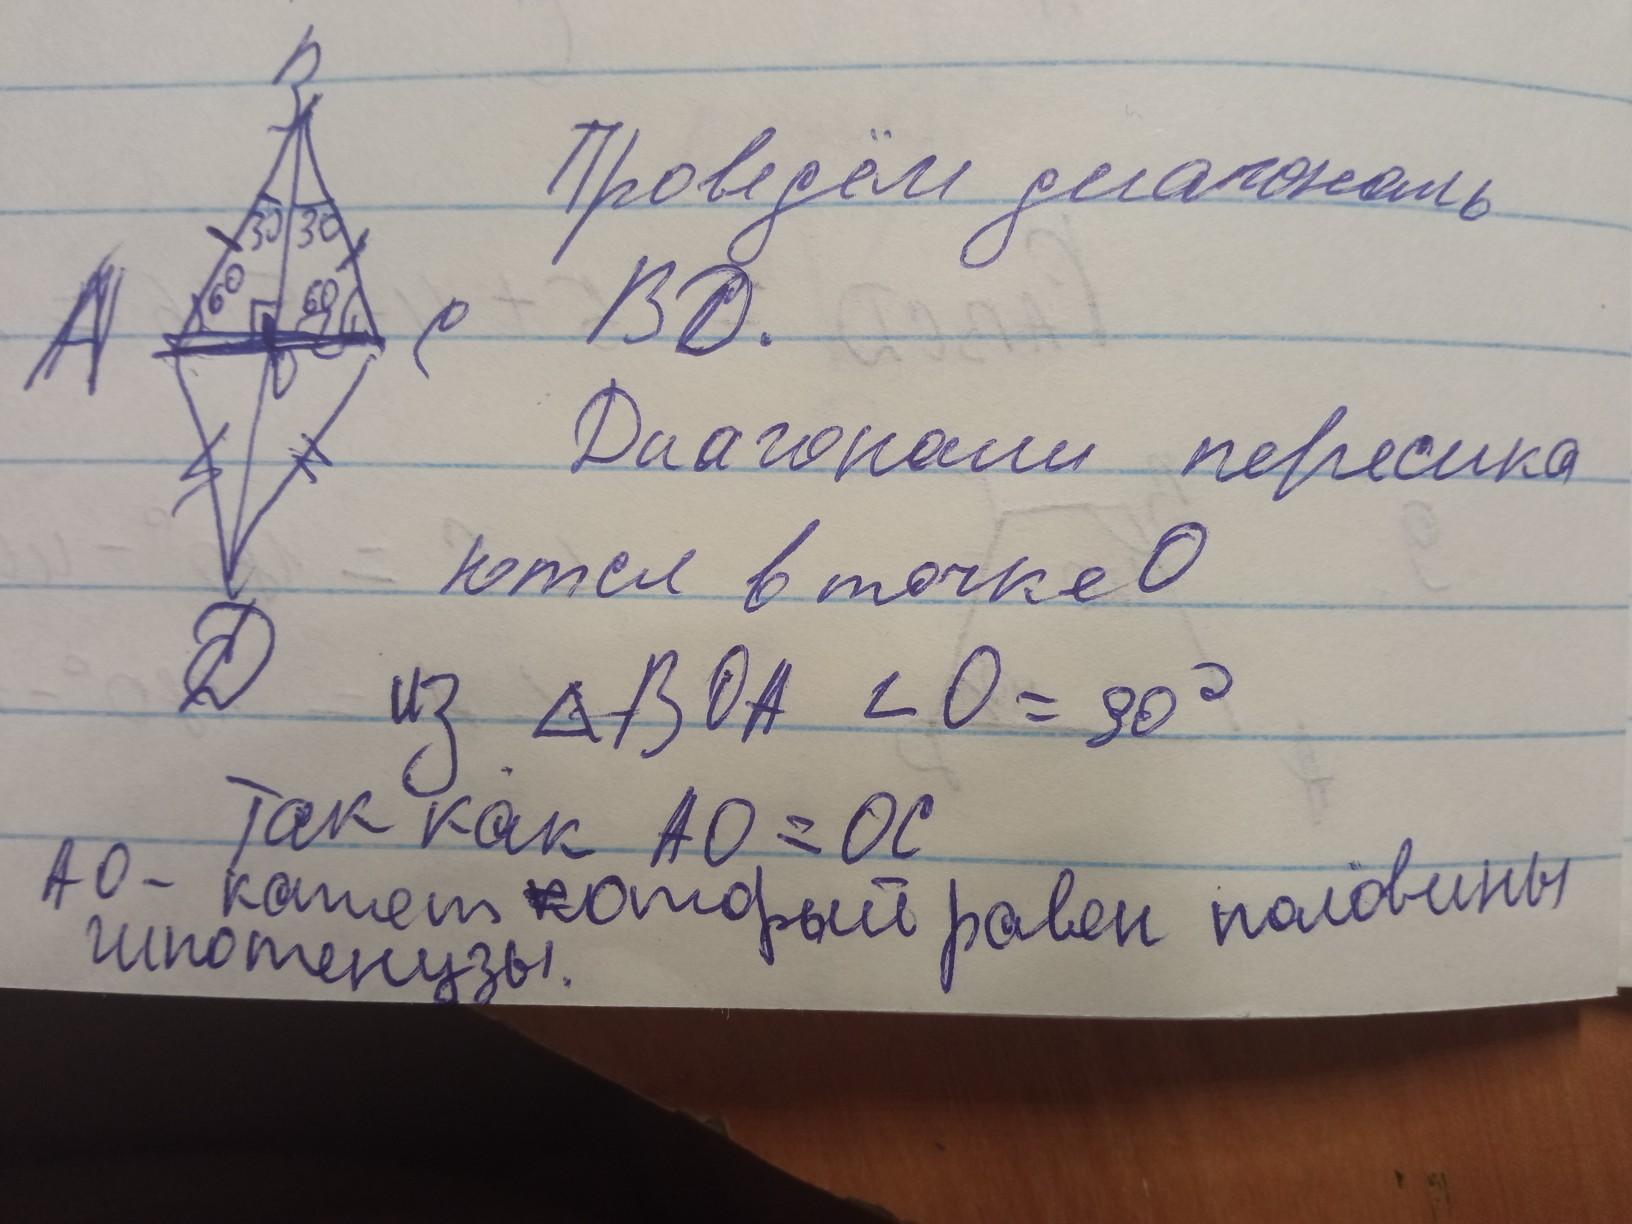 B
30 30
60 60
A C
O
D
Проведём диагональ
BD.
Диагонали пересика
ются в точке O
из △BOA ∠O = 90°
Так как AO = OC
AO - катет который равен половины
гипотенузы.